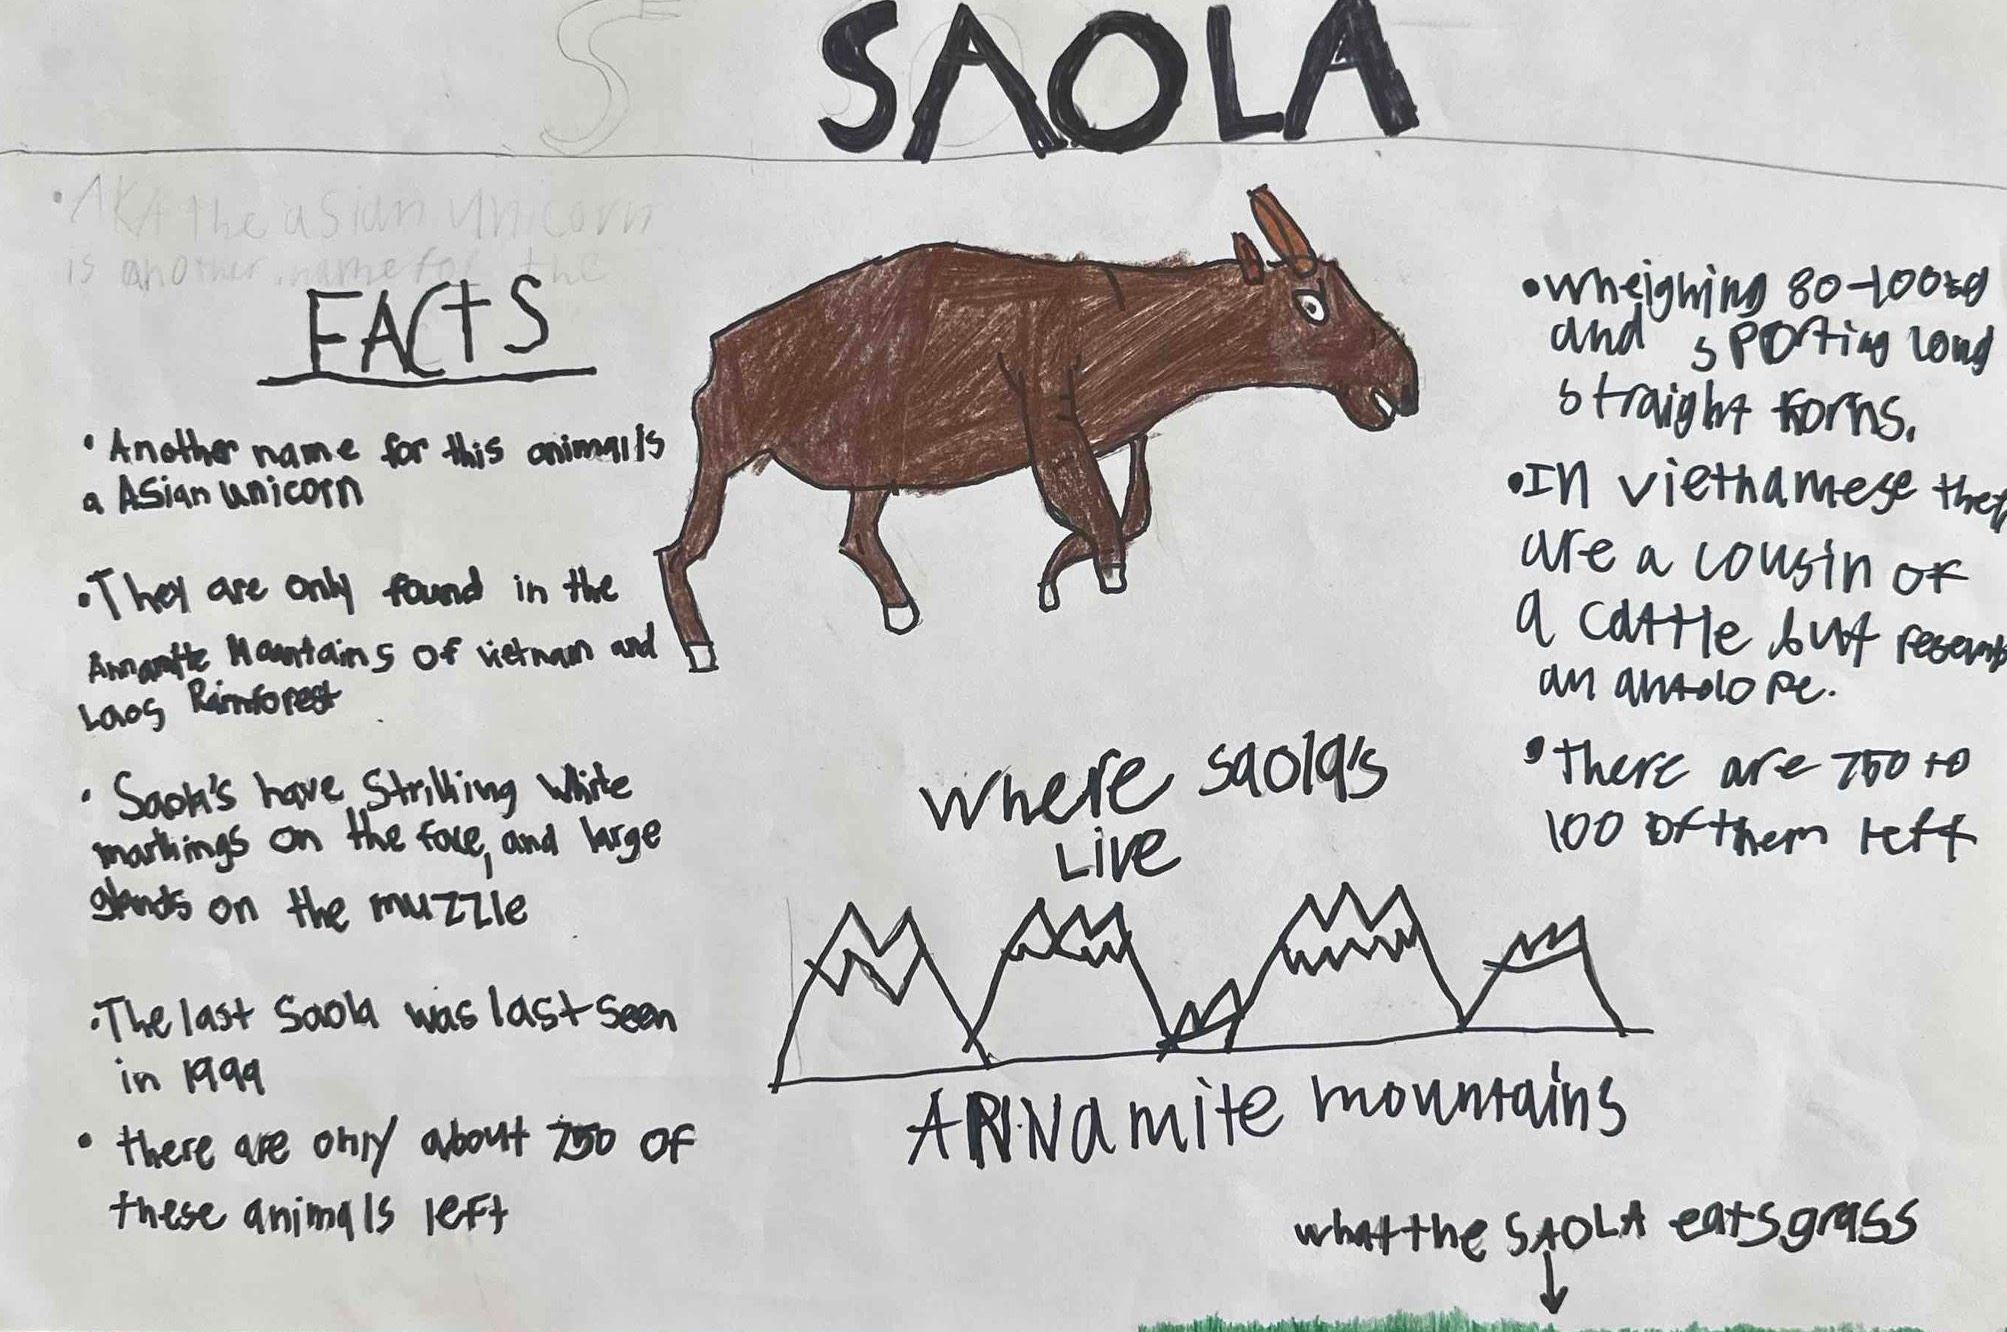 SAOLA
• AKA the asian unicorn
is another name for the
FACTS
• Another name for this animal is
a Asian unicorn
• They are only found in the
Annamite Mountains of vietnam and
Laos Rainforest
• Saola's have Striking White
markings on the face, and large
glands on the muzzle
• The last Saola was last seen
in 1999
• there are only about 750 of
these animals left
• Wheighing 80-100kg
and sporting long
straight horns.
• In vietnamese they
are a cousin of
a cattle but resemb
an antelope.
• There are 750 to
100 of them left
where saola's
Live
ANNamite mountains
what the SAOLA eats grass